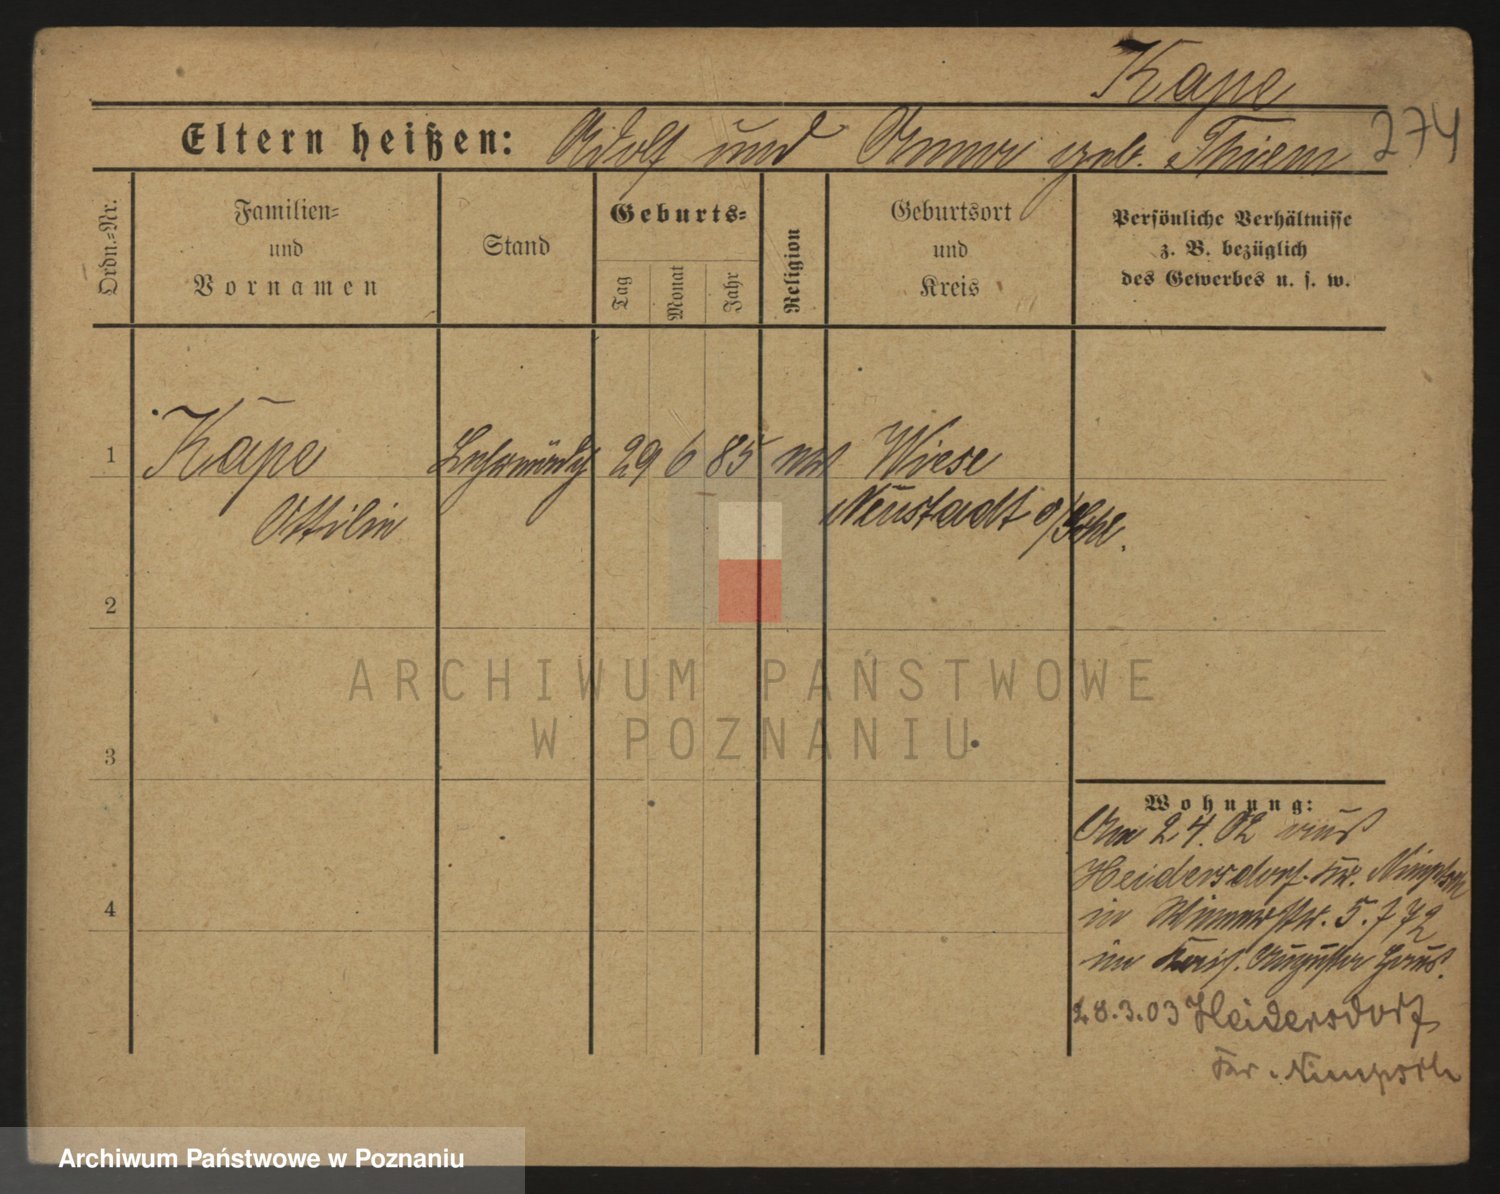 Kape
274
Eltern heißen: Adolf und Anna geb. Thiem
Ordn.-Nr.
Familien-
und
Vornamen
Stand
Geburts-
Tag
Monat
Jahr
Religion
Geburtsort
und
Kreis
Persönliche Verhältnisse
z. B. bezüglich
des Gewerbes u. s. w.
1
Kape 29 6 85 Wiese
Ottilie Neustadt o/Schl.
2
3
4
ARCHIWUM PAŃSTWOWE
W POZNANIU
Wohnung:
Am 2 4. 02 aus
Heidersdorf Kr. Nimptsch
in
im Kais. Auguste Haus.
28.3.03 Heidersdorf
Kr. Nimptsch
Archiwum Państwowe w Poznaniu